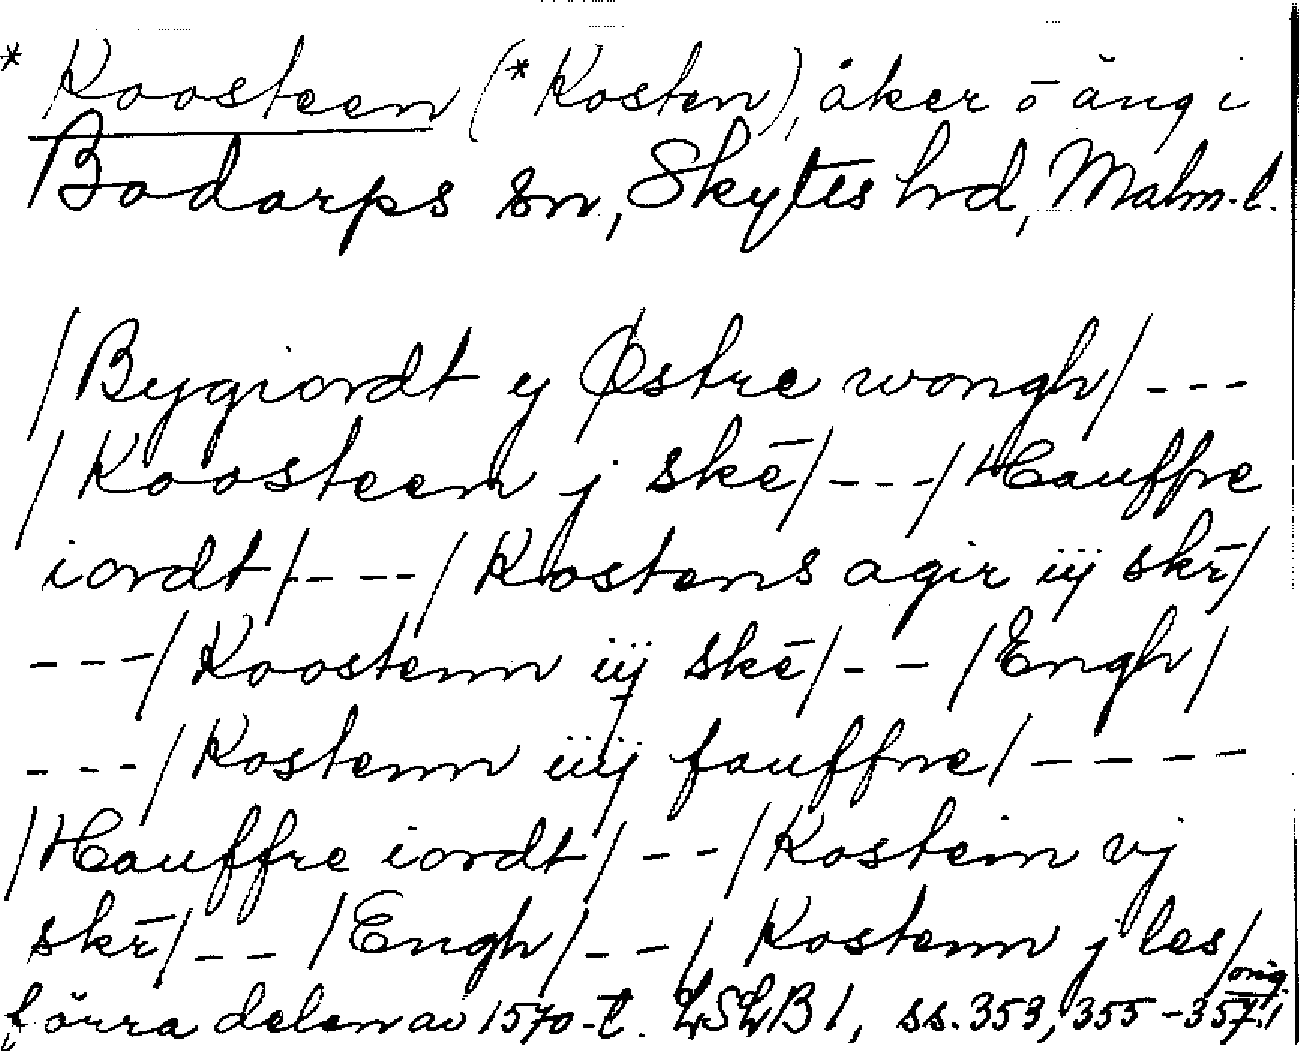 * Koosteen (*Kosten), åker o äng i
Bodarps sn, Skytts hrd, Malm. l.
/Bygiordt y Østre wongh/ ---
/Koosteen j skē/ --- /Hauffre
iordt/ --- /Kostens agir iij skr̄/
--- /Koostenn iij skē/ -- /Engh/
--- /Kostenn iiij fauffne/ ----
/Hauffre iordt/ -- /Kostein vj
skr̄/ -- /Engh/ -- / Kostenn j les/
förra delen av 1570-t. LSLB 1, ss. 353, 355-357. orig.